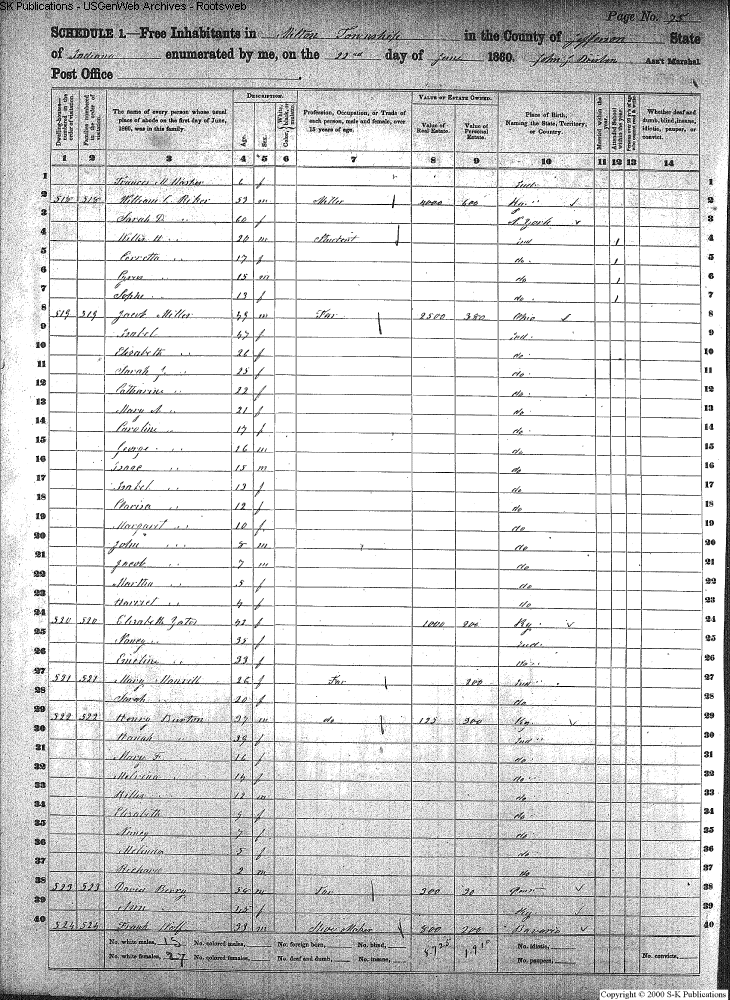 SK Publications - USGenWeb Archives - Rootsweb
Page No. 75
SCHEDULE 1.—Free Inhabitants in Milton Township in the County of Jefferson State
of Indiana enumerated by me, on the 22nd day of June 1860. John J. Ass't Marshal
Post Office
DESCRIPTION. VALUE OF ESTATE OWNED.
Dwelling-houses— numbered in the order of visitation. Families numbered in the order of visitation. The name of every person whose usual place of abode on the first day of June, 1860, was in this family. Age. Sex. Color, White, black, or mulatto. Profession, Occupation, or Trade of each person, male and female, over 15 years of age. Value of Real Estate. Value of Personal Estate. Place of Birth, Naming the State, Territory, or Country. Married within the year. Attended School within the year. Whether deaf and dumb, blind, insane, idiotic, pauper, or convict.
1 2 3 4 5 6 7 8 9 10 11 12 13 14
1 Frances M 6 f Ind 1
2 518 518 William C. Riker 59 m Miller 4000 600 Ky 2
3 Sarah D. " 60 f N York 3
4 Willis H " 20 m Student Ind 1 4
5 17 f do 1 5
6 Cyrus " 15 m do 1 6
7 Sophe " 13 f do 1 7
8 519 519 Jacob Miller 49 m Far 2500 380 Ohio 8
9 Isabel 47 f Ind 9
10 Elisabeth " 26 f do 10
11 Sarah J. " 25 f do 11
12 Catharine " 22 f do 12
13 Mary A " 21 f do 13
14 Caroline " 17 f do 14
15 George " 16 m do 15
16 Isaac " 15 m do 16
17 Isabel " 13 f do 17
18 Clarisa " 12 f do 18
19 Margaret " 10 f do 19
20 John " 8 m do 20
21 Jacob " 7 m do 21
22 Martha " 5 f do 22
23 Harriet " 4 f do 23
24 520 520 Elisabeth Yates 42 f 1000 200 Ky 24
25 Nancy " 35 f Ind 25
26 Emeline " 33 f do 26
27 521 521 Mary 26 f Far 200 Ind 27
28 Sarah " 20 f do 28
29 522 522 Henry Burton 37 m do 125 300 Ky 29
30 Hanah " 39 f Ind 30
31 Mary F " 16 f do 31
32 Melvina " 14 f do 32
33 Willis " 12 m do 33
34 Elisabeth 9 f do 34
35 Nancy 7 f do 35
36 Melinda 5 f do 36
37 Richard 2 m do 37
38 523 523 David Berry 56 m Far 300 30 38
39 Ann " 45 f Ky 39
40 524 524 Frank 33 m Shoe Maker 800 200 Bavaria 40
No. white males, 15 No. colored males, No. foreign born, No. blind, No. idiotic,
No. white females, 27 No. colored females, No. deaf and dumb, No. insane, No. paupers, No. convicts,
Copyright © 2000 S-K Publications